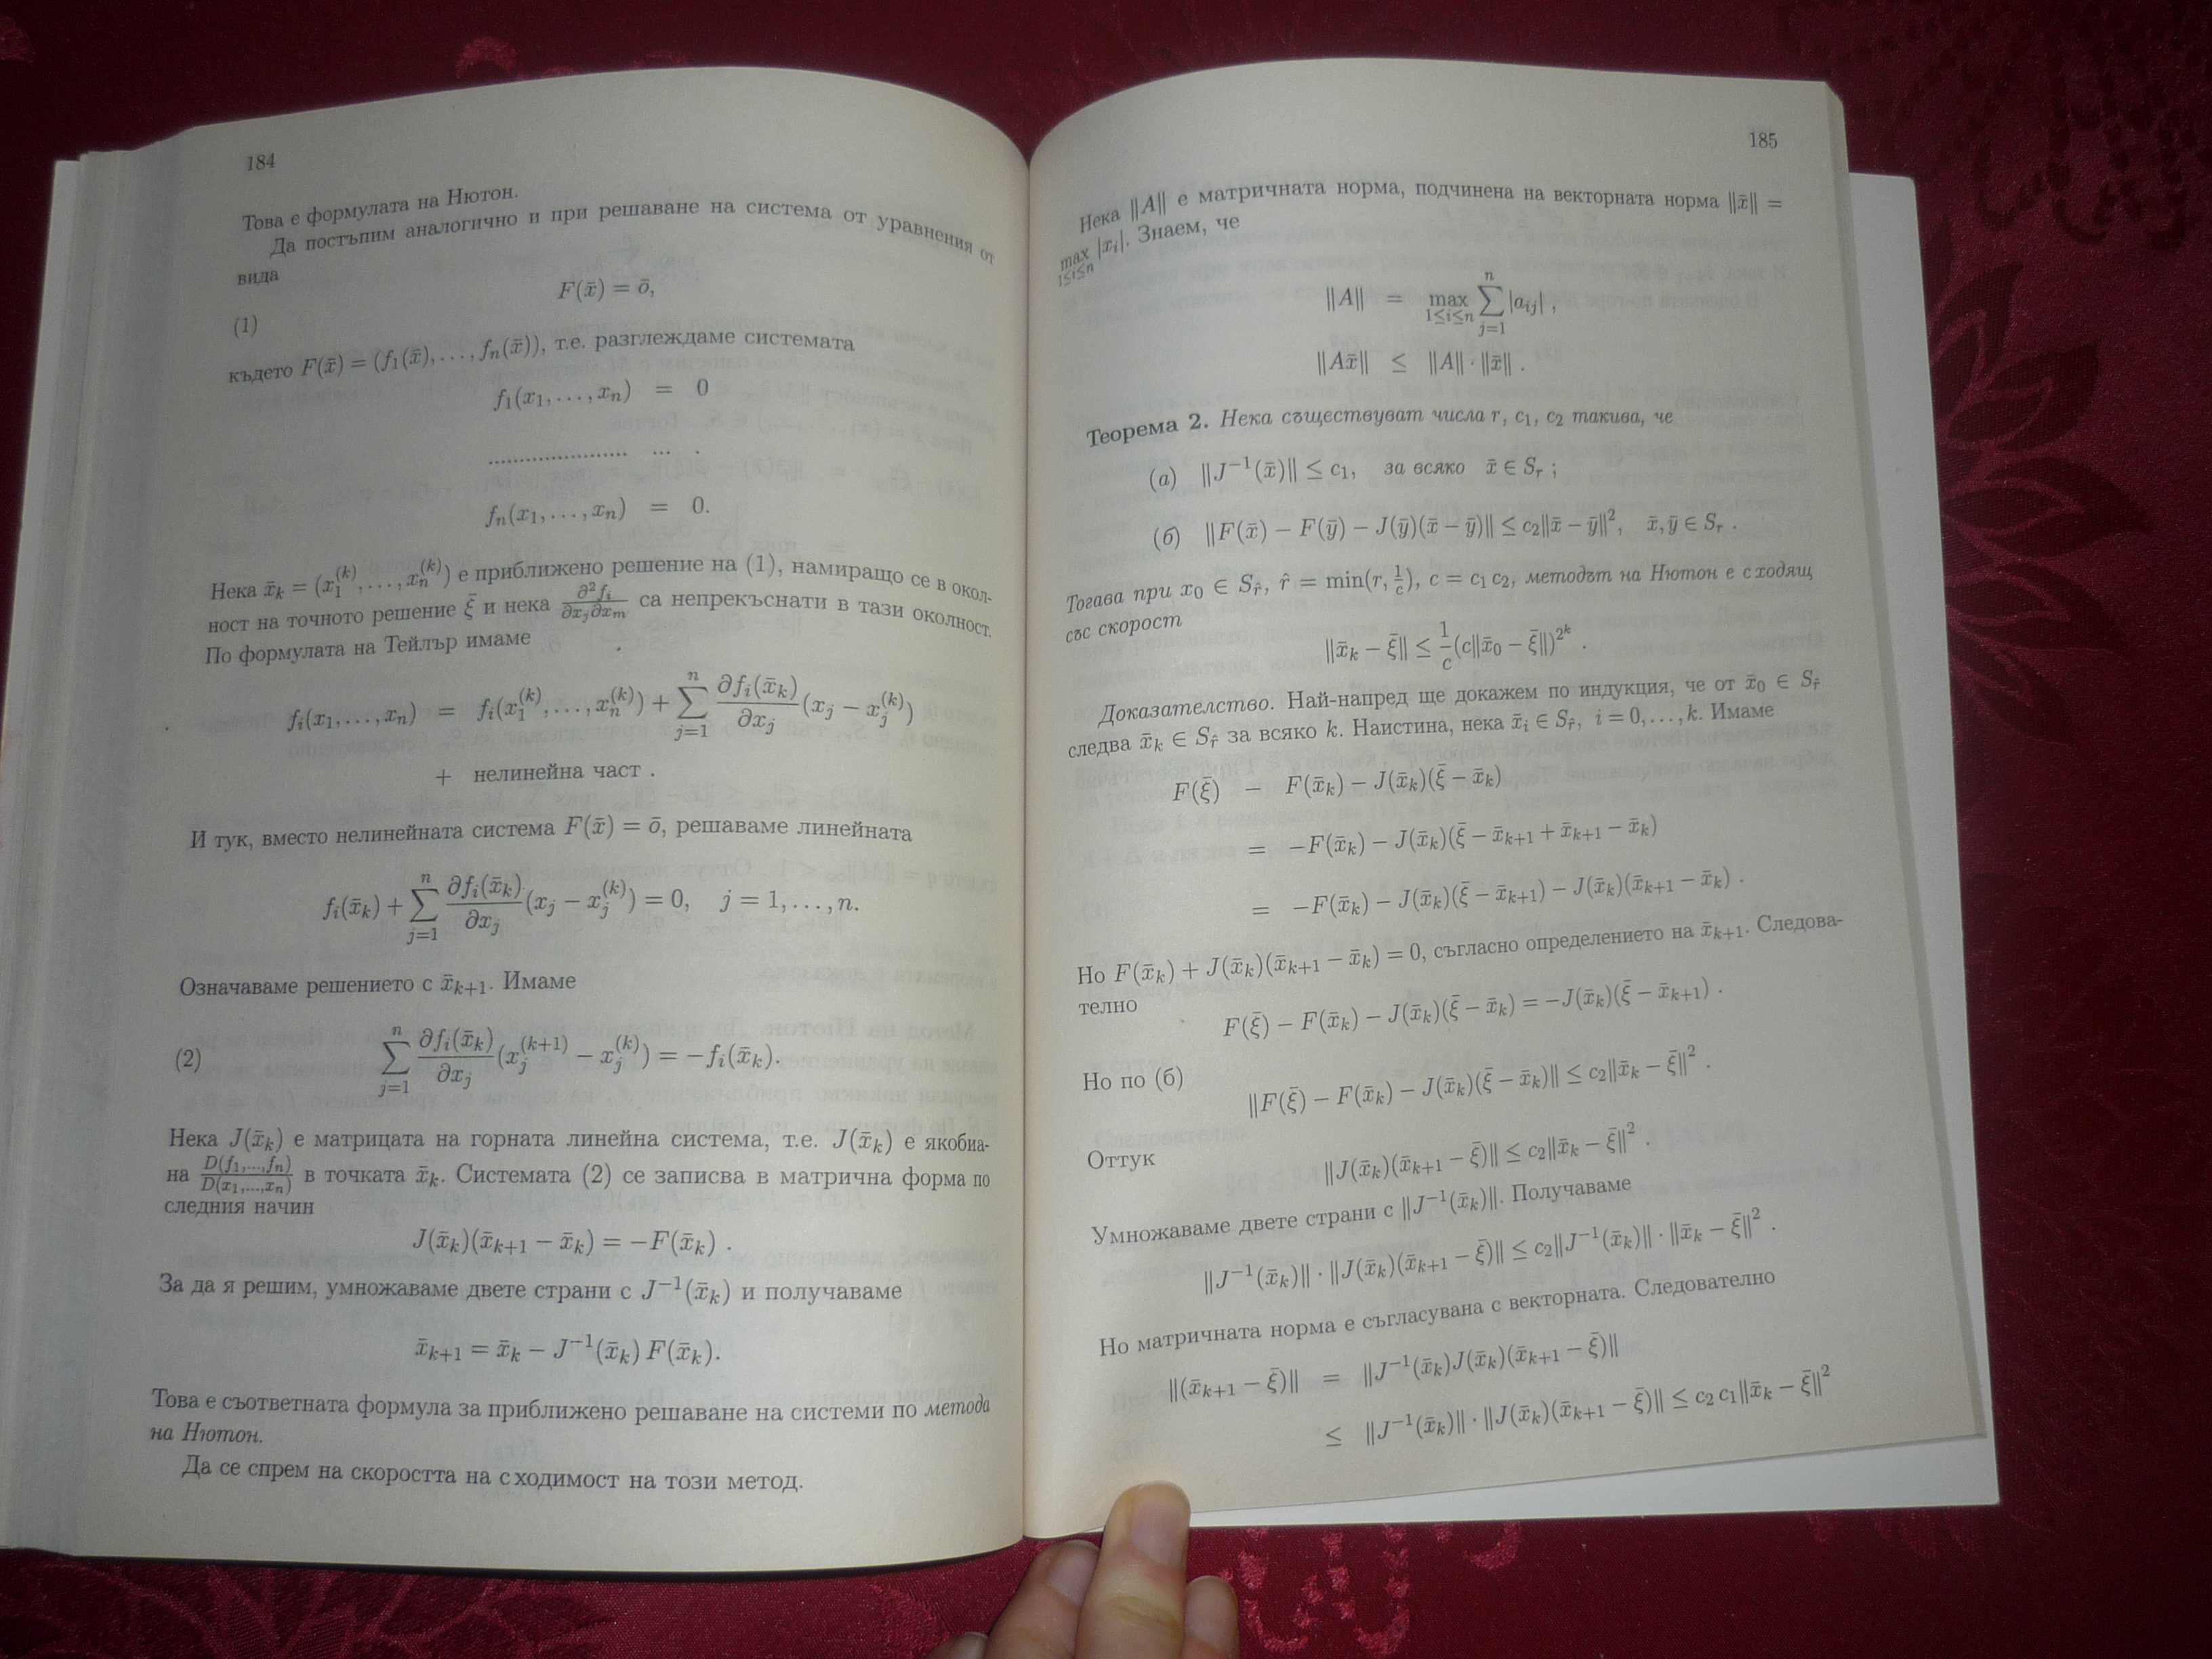 184
Това е формулата на Нютон.
Да постъпим аналогично и при решаване на система от уравнения от
вида
F(x̄) = ō,
(1)
където F(x̄) = (f₁(x̄), . . . , fₙ(x̄)), т.е. разглеждаме системата
f₁(x₁, . . . , xₙ) = 0
........................ ... .
fₙ(x₁, . . . , xₙ) = 0.
Нека x̄ₖ = (x₁^(k), . . . , xₙ^(k)) е приближено решение на (1), намиращо се в окол-
ност на точното решение ξ̄ и нека ∂²fᵢ/∂xⱼ∂xₘ са непрекъснати в тази околност.
По формулата на Тейлър имаме
fᵢ(x₁, . . . , xₙ) = fᵢ(x₁^(k), . . . , xₙ^(k)) + ∑_{j=1}^{n} ∂fᵢ(x̄ₖ)/∂xⱼ (xⱼ − xⱼ^(k))
+ нелинейна част .
И тук, вместо нелинейната система F(x̄) = ō, решаваме линейната
fᵢ(x̄ₖ) + ∑_{j=1}^{n} ∂fᵢ(x̄ₖ)/∂xⱼ (xⱼ − xⱼ^(k)) = 0, j = 1, . . . , n.
Означаваме решението с x̄ₖ₊₁. Имаме
(2) ∑_{j=1}^{n} ∂fᵢ(x̄ₖ)/∂xⱼ (xⱼ^(k+1) − xⱼ^(k)) = −fᵢ(x̄ₖ).
Нека J(x̄ₖ) е матрицата на горната линейна система, т.е. J(x̄ₖ) е якобиа-
на D(f₁,...,fₙ)/D(x₁,...,xₙ) в точката x̄ₖ. Системата (2) се записва в матрична форма по
следния начин
J(x̄ₖ)(x̄ₖ₊₁ − x̄ₖ) = −F(x̄ₖ) .
За да я решим, умножаваме двете страни с J⁻¹(x̄ₖ) и получаваме
x̄ₖ₊₁ = x̄ₖ − J⁻¹(x̄ₖ) F(x̄ₖ).
Това е съответната формула за приближено решаване на системи по метода
на Нютон.
Да се спрем на скоростта на сходимост на този метод.
185
Нека ‖A‖ е матричната норма, подчинена на векторната норма ‖x̄‖ =
max_{1≤i≤n} |xᵢ|. Знаем, че
‖A‖ = max_{1≤i≤n} ∑_{j=1}^{n} |aᵢⱼ| ,
‖Ax̄‖ ≤ ‖A‖ · ‖x̄‖ .
Теорема 2. Нека съществуват числа r, c₁, c₂ такива, че
(а) ‖J⁻¹(x̄)‖ ≤ c₁, за всяко x̄ ∈ Sᵣ ;
(б) ‖F(x̄) − F(ȳ) − J(ȳ)(x̄ − ȳ)‖ ≤ c₂‖x̄ − ȳ‖², x̄, ȳ ∈ Sᵣ .
Тогава при x₀ ∈ S_r̂, r̂ = min(r, 1/c), c = c₁ c₂, методът на Нютон е сходящ
със скорост
‖x̄ₖ − ξ̄‖ ≤ 1/c (c‖x̄₀ − ξ̄‖)^{2^k} .
Доказателство. Най-напред ще докажем по индукция, че от x̄₀ ∈ S_r̂
следва x̄ₖ ∈ S_r̂ за всяко k. Наистина, нека x̄ᵢ ∈ S_r̂, i = 0, . . . , k. Имаме
F(ξ̄) − F(x̄ₖ) − J(x̄ₖ)(ξ̄ − x̄ₖ)
= −F(x̄ₖ) − J(x̄ₖ)(ξ̄ − x̄ₖ₊₁ + x̄ₖ₊₁ − x̄ₖ)
= −F(x̄ₖ) − J(x̄ₖ)(ξ̄ − x̄ₖ₊₁) − J(x̄ₖ)(x̄ₖ₊₁ − x̄ₖ) .
Но F(x̄ₖ) + J(x̄ₖ)(x̄ₖ₊₁ − x̄ₖ) = 0, съгласно определението на x̄ₖ₊₁. Следова-
телно
F(ξ̄) − F(x̄ₖ) − J(x̄ₖ)(ξ̄ − x̄ₖ) = −J(x̄ₖ)(ξ̄ − x̄ₖ₊₁) .
Но по (б)
‖F(ξ̄) − F(x̄ₖ) − J(x̄ₖ)(ξ̄ − x̄ₖ)‖ ≤ c₂‖x̄ₖ − ξ̄‖² .
Оттук
‖J(x̄ₖ)(x̄ₖ₊₁ − ξ̄)‖ ≤ c₂‖x̄ₖ − ξ̄‖² .
Умножаваме двете страни с ‖J⁻¹(x̄ₖ)‖. Получаваме
‖J⁻¹(x̄ₖ)‖ · ‖J(x̄ₖ)(x̄ₖ₊₁ − ξ̄)‖ ≤ c₂‖J⁻¹(x̄ₖ)‖ · ‖x̄ₖ − ξ̄‖² .
Но матричната норма е съгласувана с векторната. Следователно
‖(x̄ₖ₊₁ − ξ̄)‖ = ‖J⁻¹(x̄ₖ)J(x̄ₖ)(x̄ₖ₊₁ − ξ̄)‖
≤ ‖J⁻¹(x̄ₖ)‖ · ‖J(x̄ₖ)(x̄ₖ₊₁ − ξ̄)‖ ≤ c₂ c₁‖x̄ₖ − ξ̄‖²